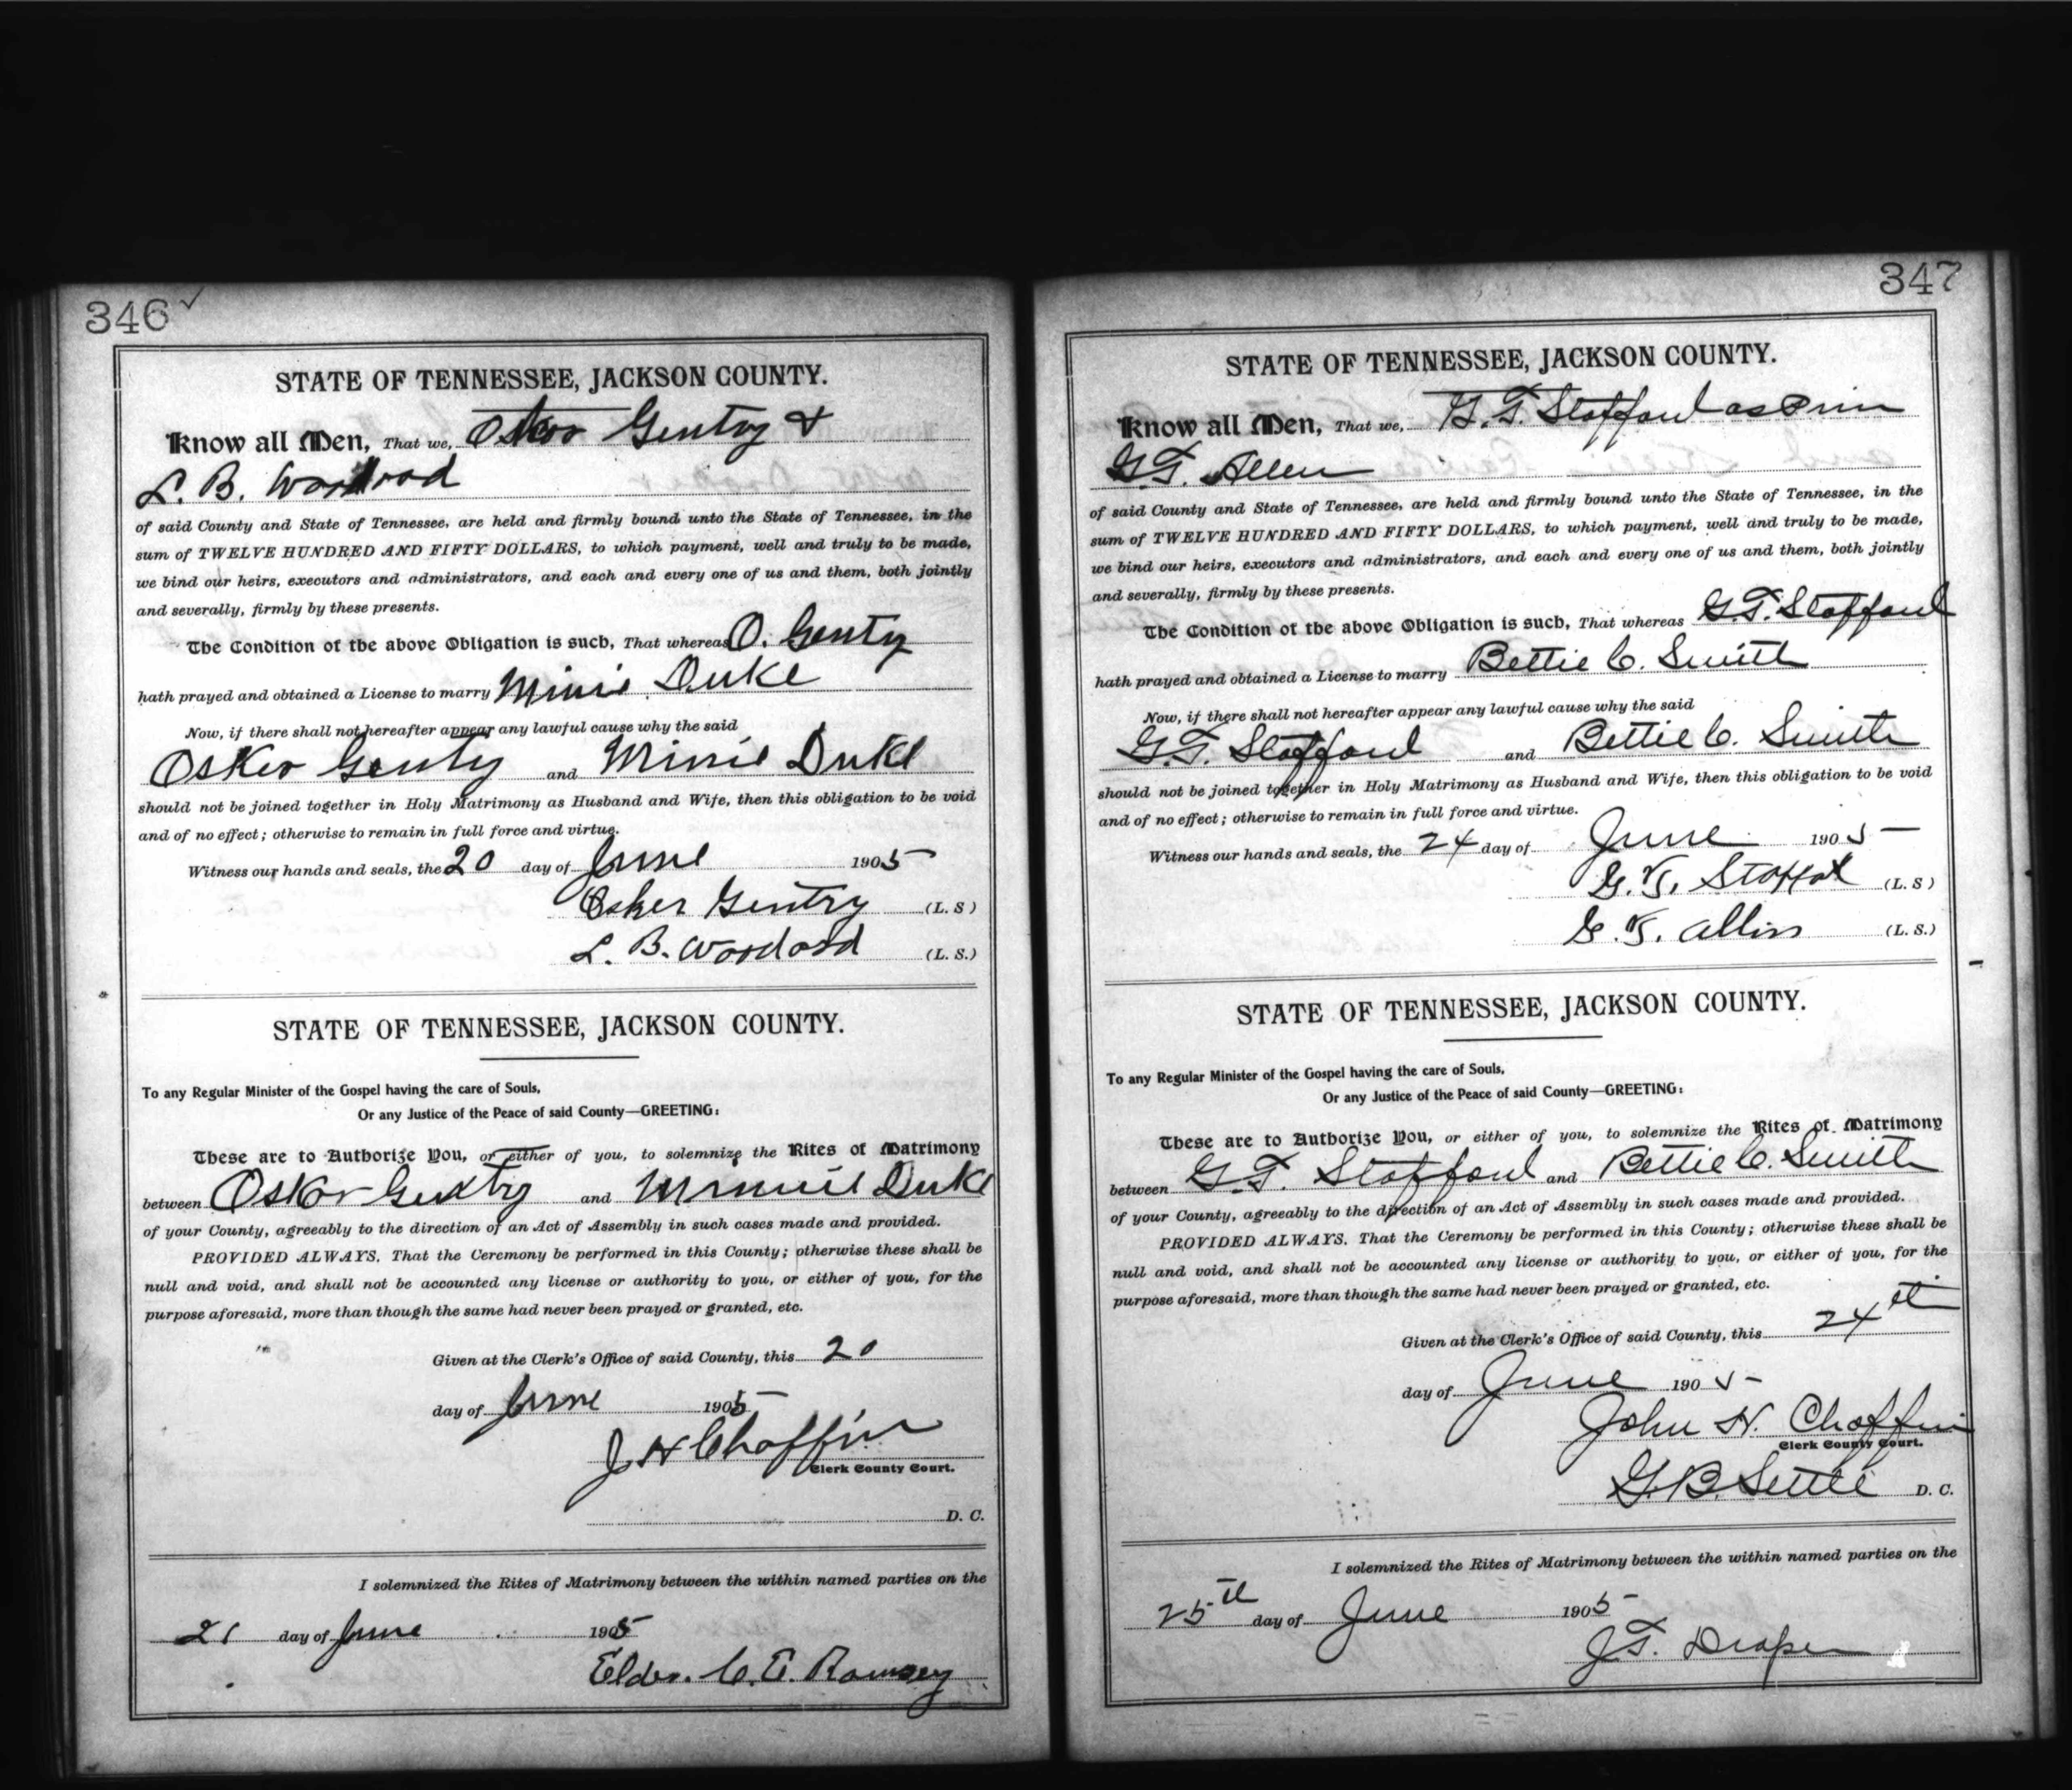 346
STATE OF TENNESSEE, JACKSON COUNTY.
Know all Men, That we, Osker Gentry &
L. B. Woodard
of said County and State of Tennessee, are held and firmly bound unto the State of Tennessee, in the
sum of TWELVE HUNDRED AND FIFTY DOLLARS, to which payment, well and truly to be made,
we bind our heirs, executors and administrators, and each and every one of us and them, both jointly
and severally, firmly by these presents.
The Condition of the above Obligation is such, That whereas O. Genty
hath prayed and obtained a License to marry Minie Duke
Now, if there shall not hereafter appear any lawful cause why the said
Osker Genty and Minnie Duke
should not be joined together in Holy Matrimony as Husband and Wife, then this obligation to be void
and of no effect; otherwise to remain in full force and virtue.
Witness our hands and seals, the 20 day of June 1905
Osker Gentry (L. S)
L. B. Woodard (L. S.)
STATE OF TENNESSEE, JACKSON COUNTY.
To any Regular Minister of the Gospel having the care of Souls,
Or any Justice of the Peace of said County—GREETING:
These are to Authorize You, or either of you, to solemnize the Rites of Matrimony
between Oskor Gentry and Minnie Duke
of your County, agreeably to the direction of an Act of Assembly in such cases made and provided.
PROVIDED ALWAYS. That the Ceremony be performed in this County; otherwise these shall be
null and void, and shall not be accounted any license or authority to you, or either of you, for the
purpose aforesaid, more than though the same had never been prayed or granted, etc.
Given at the Clerk's Office of said County, this 20
day of June 1905
J H Chaffin
Clerk County Court.
D. C.
I solemnized the Rites of Matrimony between the within named parties on the
21 day of June 1905
Elder. C. E. Ramsey
347
STATE OF TENNESSEE, JACKSON COUNTY.
Know all Men, That we, G. T. Stafford as Prin
G. T. Allen
of said County and State of Tennessee, are held and firmly bound unto the State of Tennessee, in the
sum of TWELVE HUNDRED AND FIFTY DOLLARS, to which payment, well and truly to be made,
we bind our heirs, executors and administrators, and each and every one of us and them, both jointly
and severally, firmly by these presents.
The Condition of the above Obligation is such, That whereas G. T. Stafford
hath prayed and obtained a License to marry Bettie C. Smith
Now, if there shall not hereafter appear any lawful cause why the said
G. T. Stafford and Bettie C. Smith
should not be joined together in Holy Matrimony as Husband and Wife, then this obligation to be void
and of no effect; otherwise to remain in full force and virtue.
Witness our hands and seals, the 24 day of June 1905
G. T. (L. S)
G. T. Allin (L. S.)
STATE OF TENNESSEE, JACKSON COUNTY.
To any Regular Minister of the Gospel having the care of Souls,
Or any Justice of the Peace of said County—GREETING:
These are to Authorize You, or either of you, to solemnize the Rites of Matrimony
between G. T. Stafford and Bettie C. Smith
of your County, agreeably to the direction of an Act of Assembly in such cases made and provided.
PROVIDED ALWAYS. That the Ceremony be performed in this County; otherwise these shall be
null and void, and shall not be accounted any license or authority to you, or either of you, for the
purpose aforesaid, more than though the same had never been prayed or granted, etc.
Given at the Clerk's Office of said County, this 24th
day of June 1905
John H. Chaffin
Clerk County Court.
G. B. Settle D. C.
I solemnized the Rites of Matrimony between the within named parties on the
25th day of June 1905
J. T. Draper